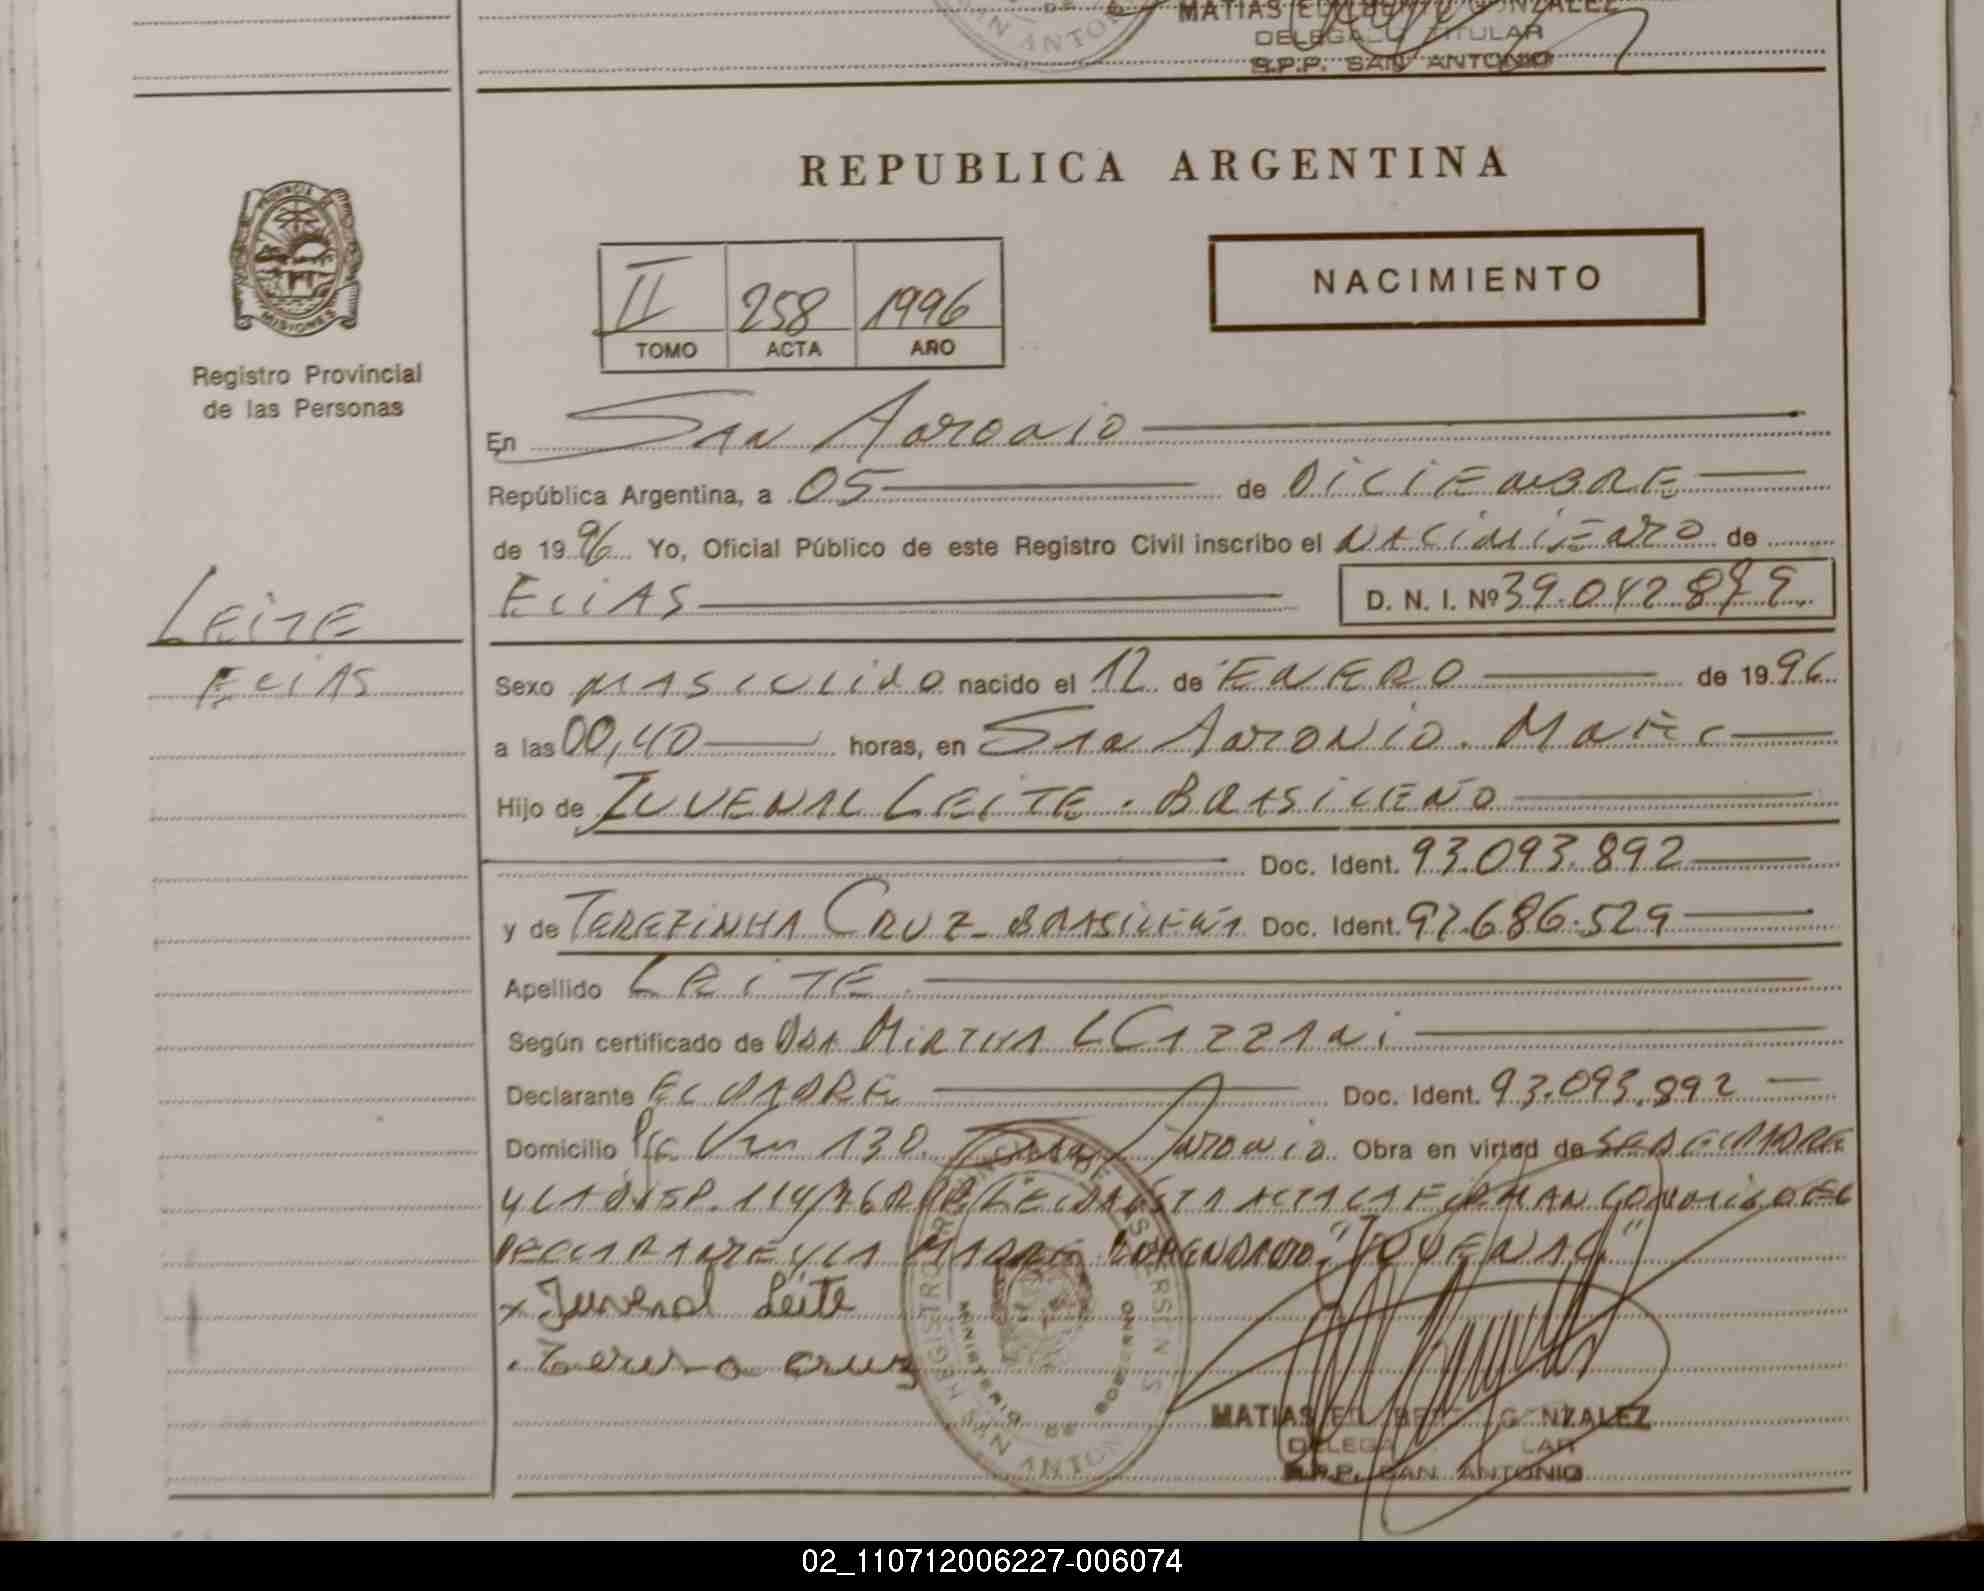 MATIAS EDILBERTO GONZALEZ
DELEGADO TITULAR
R.P.P. SAN ANTONIO
REPUBLICA ARGENTINA
PROVINCIA DE
MISIONES
Registro Provincial
de las Personas
II 258 1996
TOMO ACTA AÑO
NACIMIENTO
En San Antonio
República Argentina, a 05 de DICIEMBRE
de 1996 Yo, Oficial Público de este Registro Civil inscribo el NACIMIENTO de
ELIAS D. N. I. Nº 39.042.879
LEITE
ELIAS
Sexo MASCULINO nacido el 12 de ENERO de 1996
a las 00,40 horas, en San Antonio.
Hijo de JUVENAL LEITE. BRASILEÑO
Doc. Ident. 93.093.892
y de TEREZINHA CRUZ- BRASILEÑA Doc. Ident. 92.686.529
Apellido LEITE
Según certificado de DRA MIRTHA L CAZZANI
Declarante EL PADRE Doc. Ident. 93.093.892
Domicilio San Antonio. Obra en virtud de SER EL PADRE
Y LA DISP. 114/76 LEIDA ESTA ACTA LA FIRMAN CONMIGO EL
DECLARANTE Y LA MADRE ENMENDADO: "JUVENAL"
x Juvenal Leite
cruz
MINISTERIO DE GOBIERNO
SAN ANTONIO
MATIAS EDILBERTO GONZALEZ
DELEGADO TITULAR
R.P.P. SAN ANTONIO
02_110712006227-006074